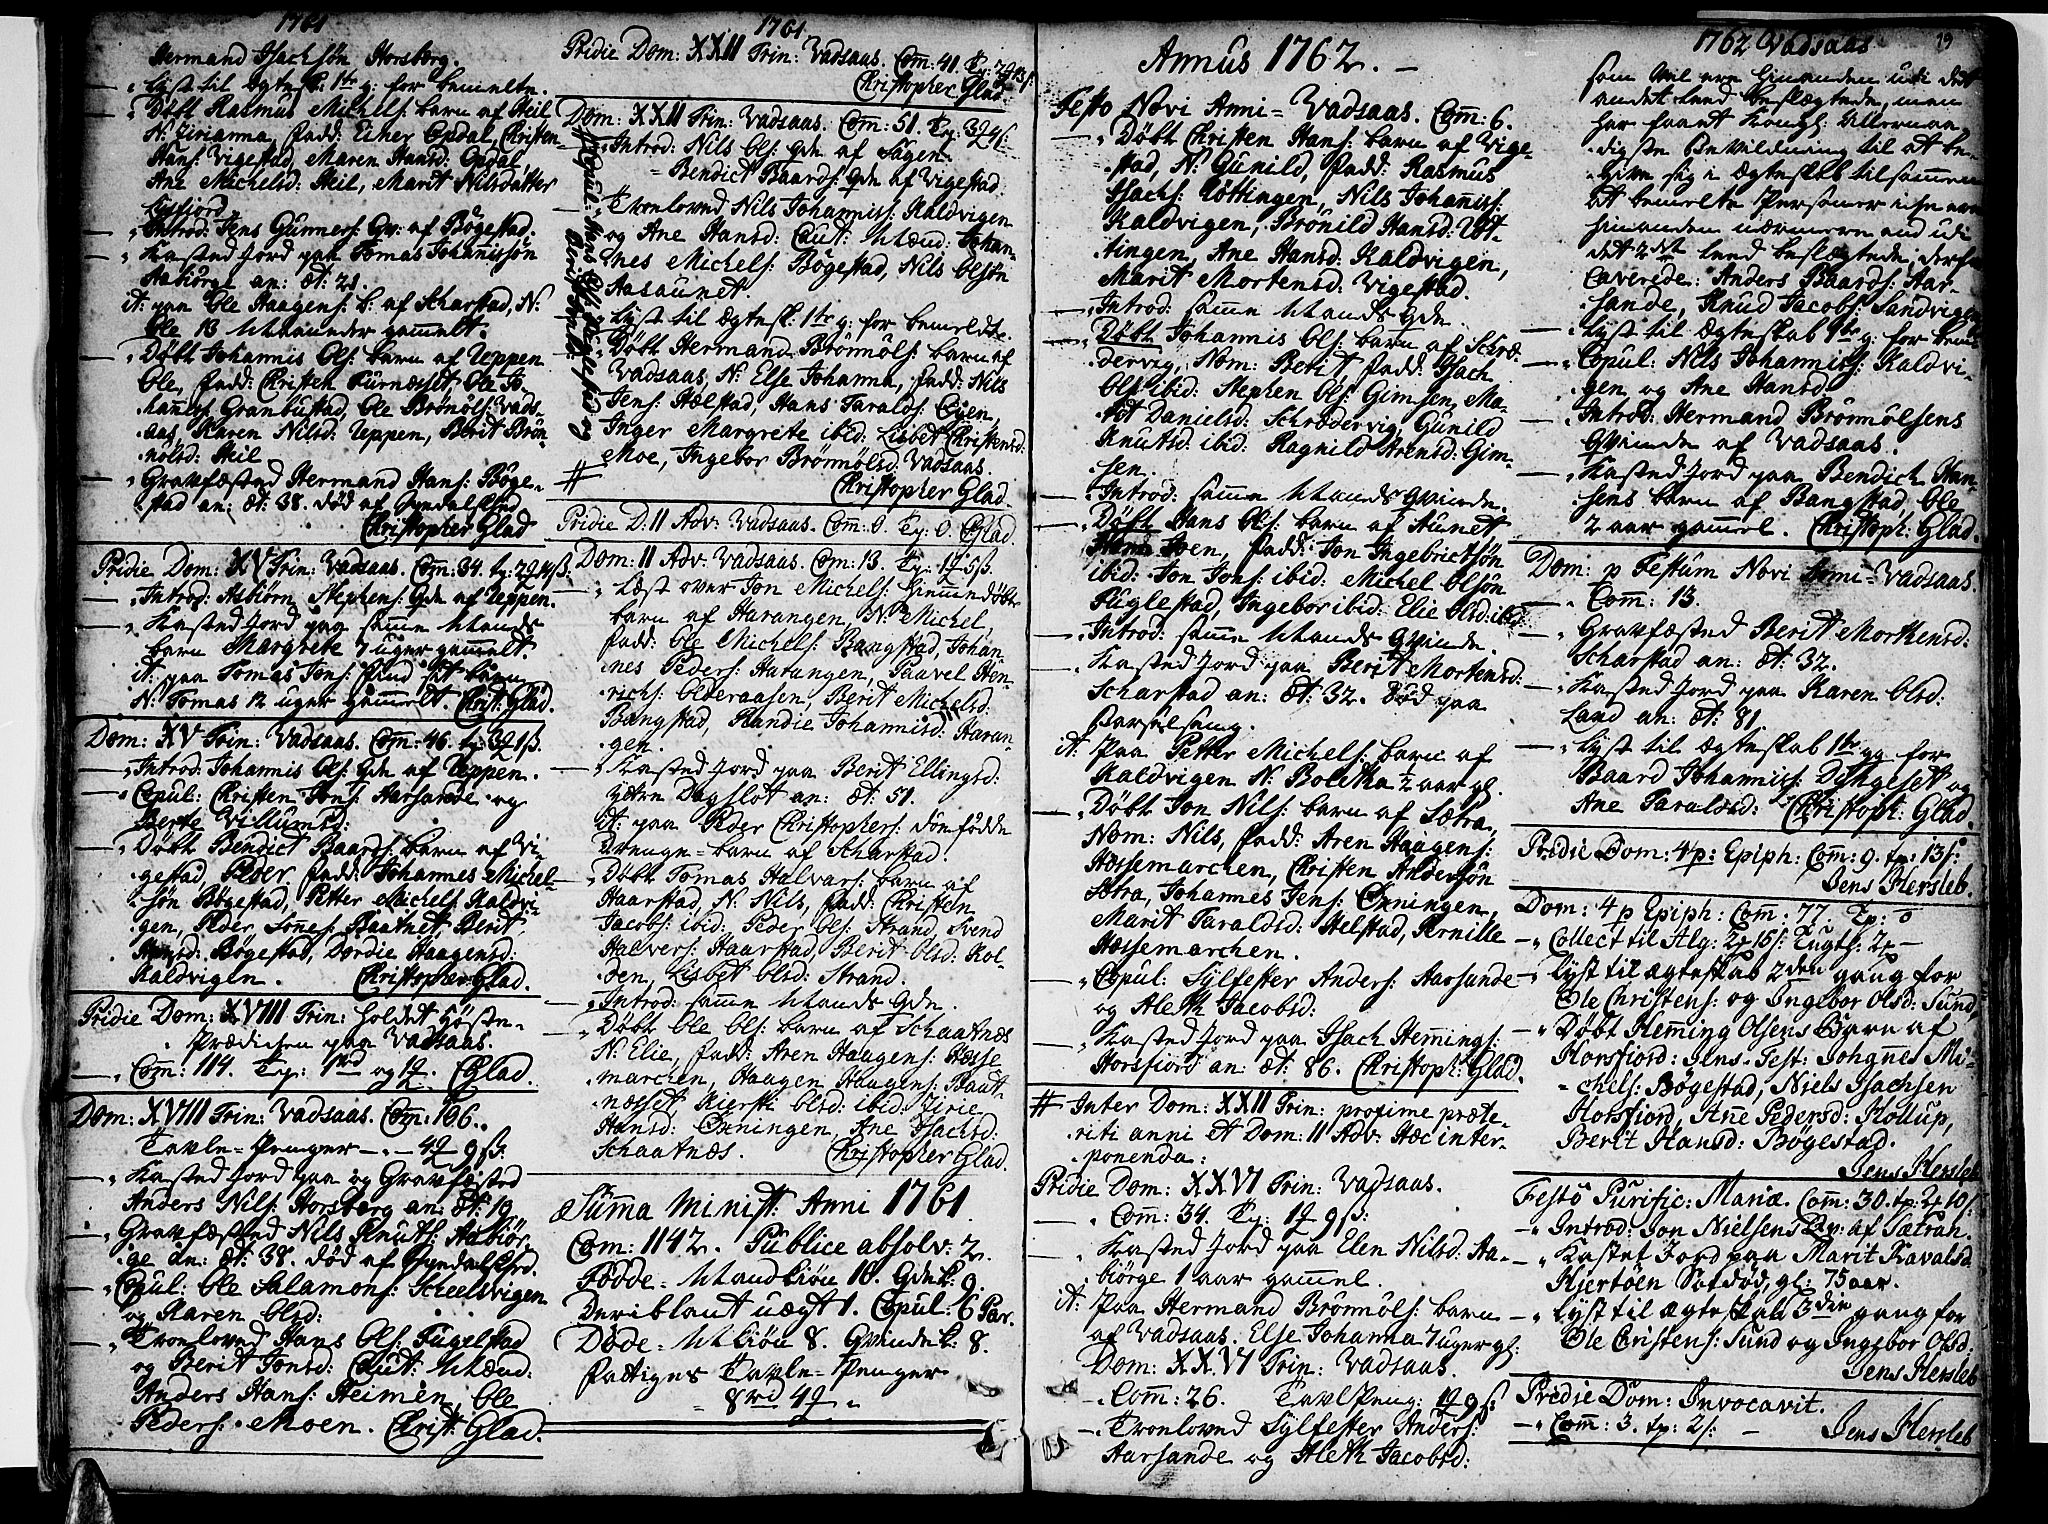 1761
Hermand Isachsøn Horsberg.
Lyst til Egtesk: 1te g: for bemelte.
Døbt Rasmus Michels: barn af Heil
N: Zirianna, fadd: Einer Opdal, Christen
Hans: Vigestad, Maren Hansd: Opdal,
Ane Michelsd: Heil, Marit Nilsdatter
Introd: Jens Gunners: Qv: af Bøgestad.
Kasted Jord paa Tomas Johannissøn
Aabiørge an: æt: 21.
it: paa Ole Haagens: b: af Scharstad, N:
Ole 13 Maaneder gammelt.
Døbt Johannis Ols: barn af Ueppen
Ole, fadd: Christen Furnesset Ole Jo-
hannes: Granbustad, Ole Brønøls: Vads-
aas, Karen Nilsd: Ueppen, Berit Brøn-
nølsd: Heil
Gravfæsted Hermand Hans: Bøge-
stad an: æt: 38. død af
Christopher Glad
Pridie Dom: XV Trin: Vadsaas. Com: 34. tp: 2 4ß.
Introd: Asbiørn Stephens: Qde af Ueppen.
Kasted Jord paa samme Mands
barn Margrete 7 uger gammelt.
it: paa Tomas Jens: Sund sit barn
N: Tomas 12 uger gammelt. Christ: Glad.
Dom: XV Trin: Vadsaas. Com: 46. tp: 3 1ß.
Introd: Johannis Ols: Qde af Ueppen.
Copul: Christen Jons: Aarsande og
Berte Villumsd:
Døbt Bendict Baards: barn af Vi-
gestad, Peder, fadd: Johannes Michel-
søn Bøgestad, Petter Michels: Kaldvi-
gen, Peder Jones: Baatnet, Berit
Hansd: Bøgestad, Dordie Haagensd:
Kaldvigen. Christopher Glad.
Pridie Dom: XVIII Trin: holdet Høste-
Prædicken paa Vadsaas.
Com: 114. Tp: 1rd og 1. CGlad.
Dom: XVIII Trin: Vadsaas. Com: 106.
Tavle-Penger - 4 9ß.
Kasted Jord paa og Gravfæsted
Anders Nils: Horsberg an: æt: 19
Gravfæsted Nils Knuts: Aabiør-
ge an: æt: 38. død af
Copul: Ole Salamons: Scheelsvigen
og Karen Olsd:
Trorloved Hans Ols: Fugelstad
og Berit Jonsd: Caut: Mænd:
Anders Hans: Heimen, Ole
Peders: Moen. Christ: Glad.
1761
Pridie Dom: XXII Trin: Vadsaas. Com: 41. Tp:
Christopher Glad.
Dom: XXII Trin: Vadsaas. Com: 51. Tp: 3
Introd: Nils Ols: Qde af Sagen
Bendict Baards: Qde af Vigestad.
Trorloved Nils Johanniss: Kaldvigen
og Ane Hansd: Caut: Mænd: Johan-
nes Michels: Bøgestad, Nils Olsøn
Aasaunet.
Lyst til Egtesk: 1te g: for bemeldte.
Døbt Hermand Brønnøls: barn af
Vadsaas, N: Else Johanna, fadd: Nils
Jens: Helstad, Hans Taralds: Eyen,
Inger Margrete ibid: Lisbet Christensd:
Moe, Ingebor Brønnølsd: Vadsaas.
# Christopher Glad
Pridie D: II Adv: Vadsaas. Com: 0. Tp: 0. CGlad.
Dom: II Adv: Vadsaas. Com: 13. Tp: 1 5ß.
Læst over Jon Michels: Hiemmedøbte
barn af Harangen, N: Michel,
fadd: Ole Michels: Bangstad, Johan-
nes Peders: Harangen, Paavel Hen-
richs: Olderaasen, Berit Michelsd:
Bangstad, Randie Johannisd: Haran-
gen.
Kasted Jord paa Berit Ellingsd:
Dagslot an: æt: 51.
it: paa Peder Christophers: dødfødde
Drenge-barn af Scharstad.
Døbt Tomas Halvars: barn af
Haarstad, N: Nils, fadd: Christen
Jacobs: ibid: Peder Ols: Strand, Svend
Halvers: Haarstad, Berit Olsd: Kol-
den, Lisbet Olsd: Strand.
Introd: samme Mands Qde.
Døbt Ole Ols: barn af Schaatnæs
N: Elie, fadd: Aren Haagens: Hesse-
marchen, Haagen Haagens: Baat-
næsset, Kiersti Olsd: ibid: Zirie
Hansd: Exningen, Ane Isachsd:
Schaatnæs. Christopher Glad.
Summa Minist: Anni 1761
Com: 1142. Publice absolv: 2.
Fødde - Mandkiøn 10. Qdek: 9.
Deriblant uægt 1. Copul: 6 Par.
Døde - Mkiøn 8. Qvindek: 8.
Fattiges Tavle-Penger
8rd 4
Annus 1762. -
Festo Novi Anni - Vadsaas. Com: 6.
Døbt Christen Hans: barn af Vige-
stad, N: Gunild, fadd: Rasmus
Isachs: Uttingen, Nils Johanniss:
Kaldvigen, Brønild Hansd: Ut-
tingen, Ane Hansd: Kaldvigen,
Marit Mortensd: Vigestad.
Introd: samme Mands Qde.
Døbt Johannis Ols: barn af Schrø-
dervig, Nom: Berit fadd: Isach
Ols: ibid: Stephen Ols: Gimsen, Ma-
rit Danielsd: Schrødervig, Gunild
Knutsd: ibid: Ragnild Arensd: Gim-
sen.
Introd: samme Mands Qvinde.
Døbt Hans Ols: barn af Aunet,
Nom: Joen, fadd: Jon Ingebrictsøn
ibid: Jon Jons: ibid: Michel Olsøn
Fuglestad, Ingebor ibid: Elie Olsd: ibid
Introd: samme Mands Qvinde.
Kasted Jord paa Berit Mortensd:
Scharstad an: æt: 32. Død paa
Barselseng.
it: Paa Petter Michels: barn af
Kaldvigen N: Boletha ½ aar gl.
Døbt Jon Nils: barn af Sætra,
Nom: Nils, fadd: Aren Haagens:
Hessemarchen, Christen Andersøn
Setra, Johannes Jens: Exningen,
Marit Taraldsd: Helstad, Pernille
Hessemarchen.
Copul: Sylfester Anders: Aarsande
og Aleth Jacobsd:
Kasted Jord paa Isach Hemings:
Horsfiord an: æt: 86. Christoph: Glad.
# Inter Dom: XXII Trin: proxime præte-
riti anni et Dom: II Adv: Hæc inter-
ponenda:
Pridie Dom: XXVI Trin: Vadsaas.
Com: 34. Tp: 1 9ß:
Kasted Jord paa Elen Nilsd: Aa-
biørge 1 aar gammel.
it: Paa Hermand Brønnøls: barn
af Vadsaas. Else Johanna 7 uger gl:
Dom: XXVI Trin: Vadsaas.
Com: 26. TavlPeng: 1 9ß:
Trorloved Sylfester Anders:
Aarsande og Aleth Jacobsd:
1762 Vadsaas 19
som vel ere hinanden udi det
andet Leed beslægtede, men
har faaet Kongl: Allernaa-
digste Bevildning til at be-
give sig i Egteskab tilsammen
at bemelte Personer icke ere
hinanden nærmere end udi
det 2det Leed beslægtede, derfor
Caverede: Anders Baards: Aar-
sande, Knud Jacobs: Sandvigen
Lyst til Egteskab 1te g: for bem:
Copul: Nils Johanniss: Kaldvi-
gen og Ane Hansd:
Introd: Hermand Brønnølsens
Qvinde af Vadsaas.
Kasted Jord paa Bendich Han-
sens barn af Bangstad, Ole
2 aar gammel. Christoph: Glad.
Dom: p Festum Novi Anni - Vadsaas.
Com: 13.
Gravfæsted Berit Morthensd:
Scharstad an: æt: 32.
Kasted Jord paa Karen Olsd:
Land an: æt: 81.
Lyst til Egteskab 1te gg for
Baard Johanniss: Dyhgeset og
Ane Taraldsd: Christoph: Glad.
Pridie Dom: 4 p: Epiph: Com: 9. tp: 13ß:
Jens Hersleb.
Dom: 4 p Epiph: Com: 77. Tp: 0
Collect til Alg: 2 15ß: Tugth: 2 -
Lyst til ægteskab 2den gang for
Ole Christens: og Ingebor Olsd: Sund,
Døbt Hemming Olsens Barn af
Horsfiord: Jens. Test: Johannes Mi-
chels: Bøgestad, Niels Isachsen
Horsfiord, Ane Pedersd: Hollup,
Berit Hansd: Bøgestad.
Jens Hersleb
Festo Purific: Mariæ. Com: 30. tp: 2 10ß.
Introd: Jon Nielsens Qv: af Sætran.
Kastet Jord paa Marit Kavalsd:
Hjertøen Sotdød, gl: 75 aar.
Lyst til ægteskab 3die gang for
Ole Christens: Sund og Ingebor Olsd:
Jens Hersleb
Pridie Dom: Invocavit.
Com: 3. tp: 2ß: -
Jens Hersleb